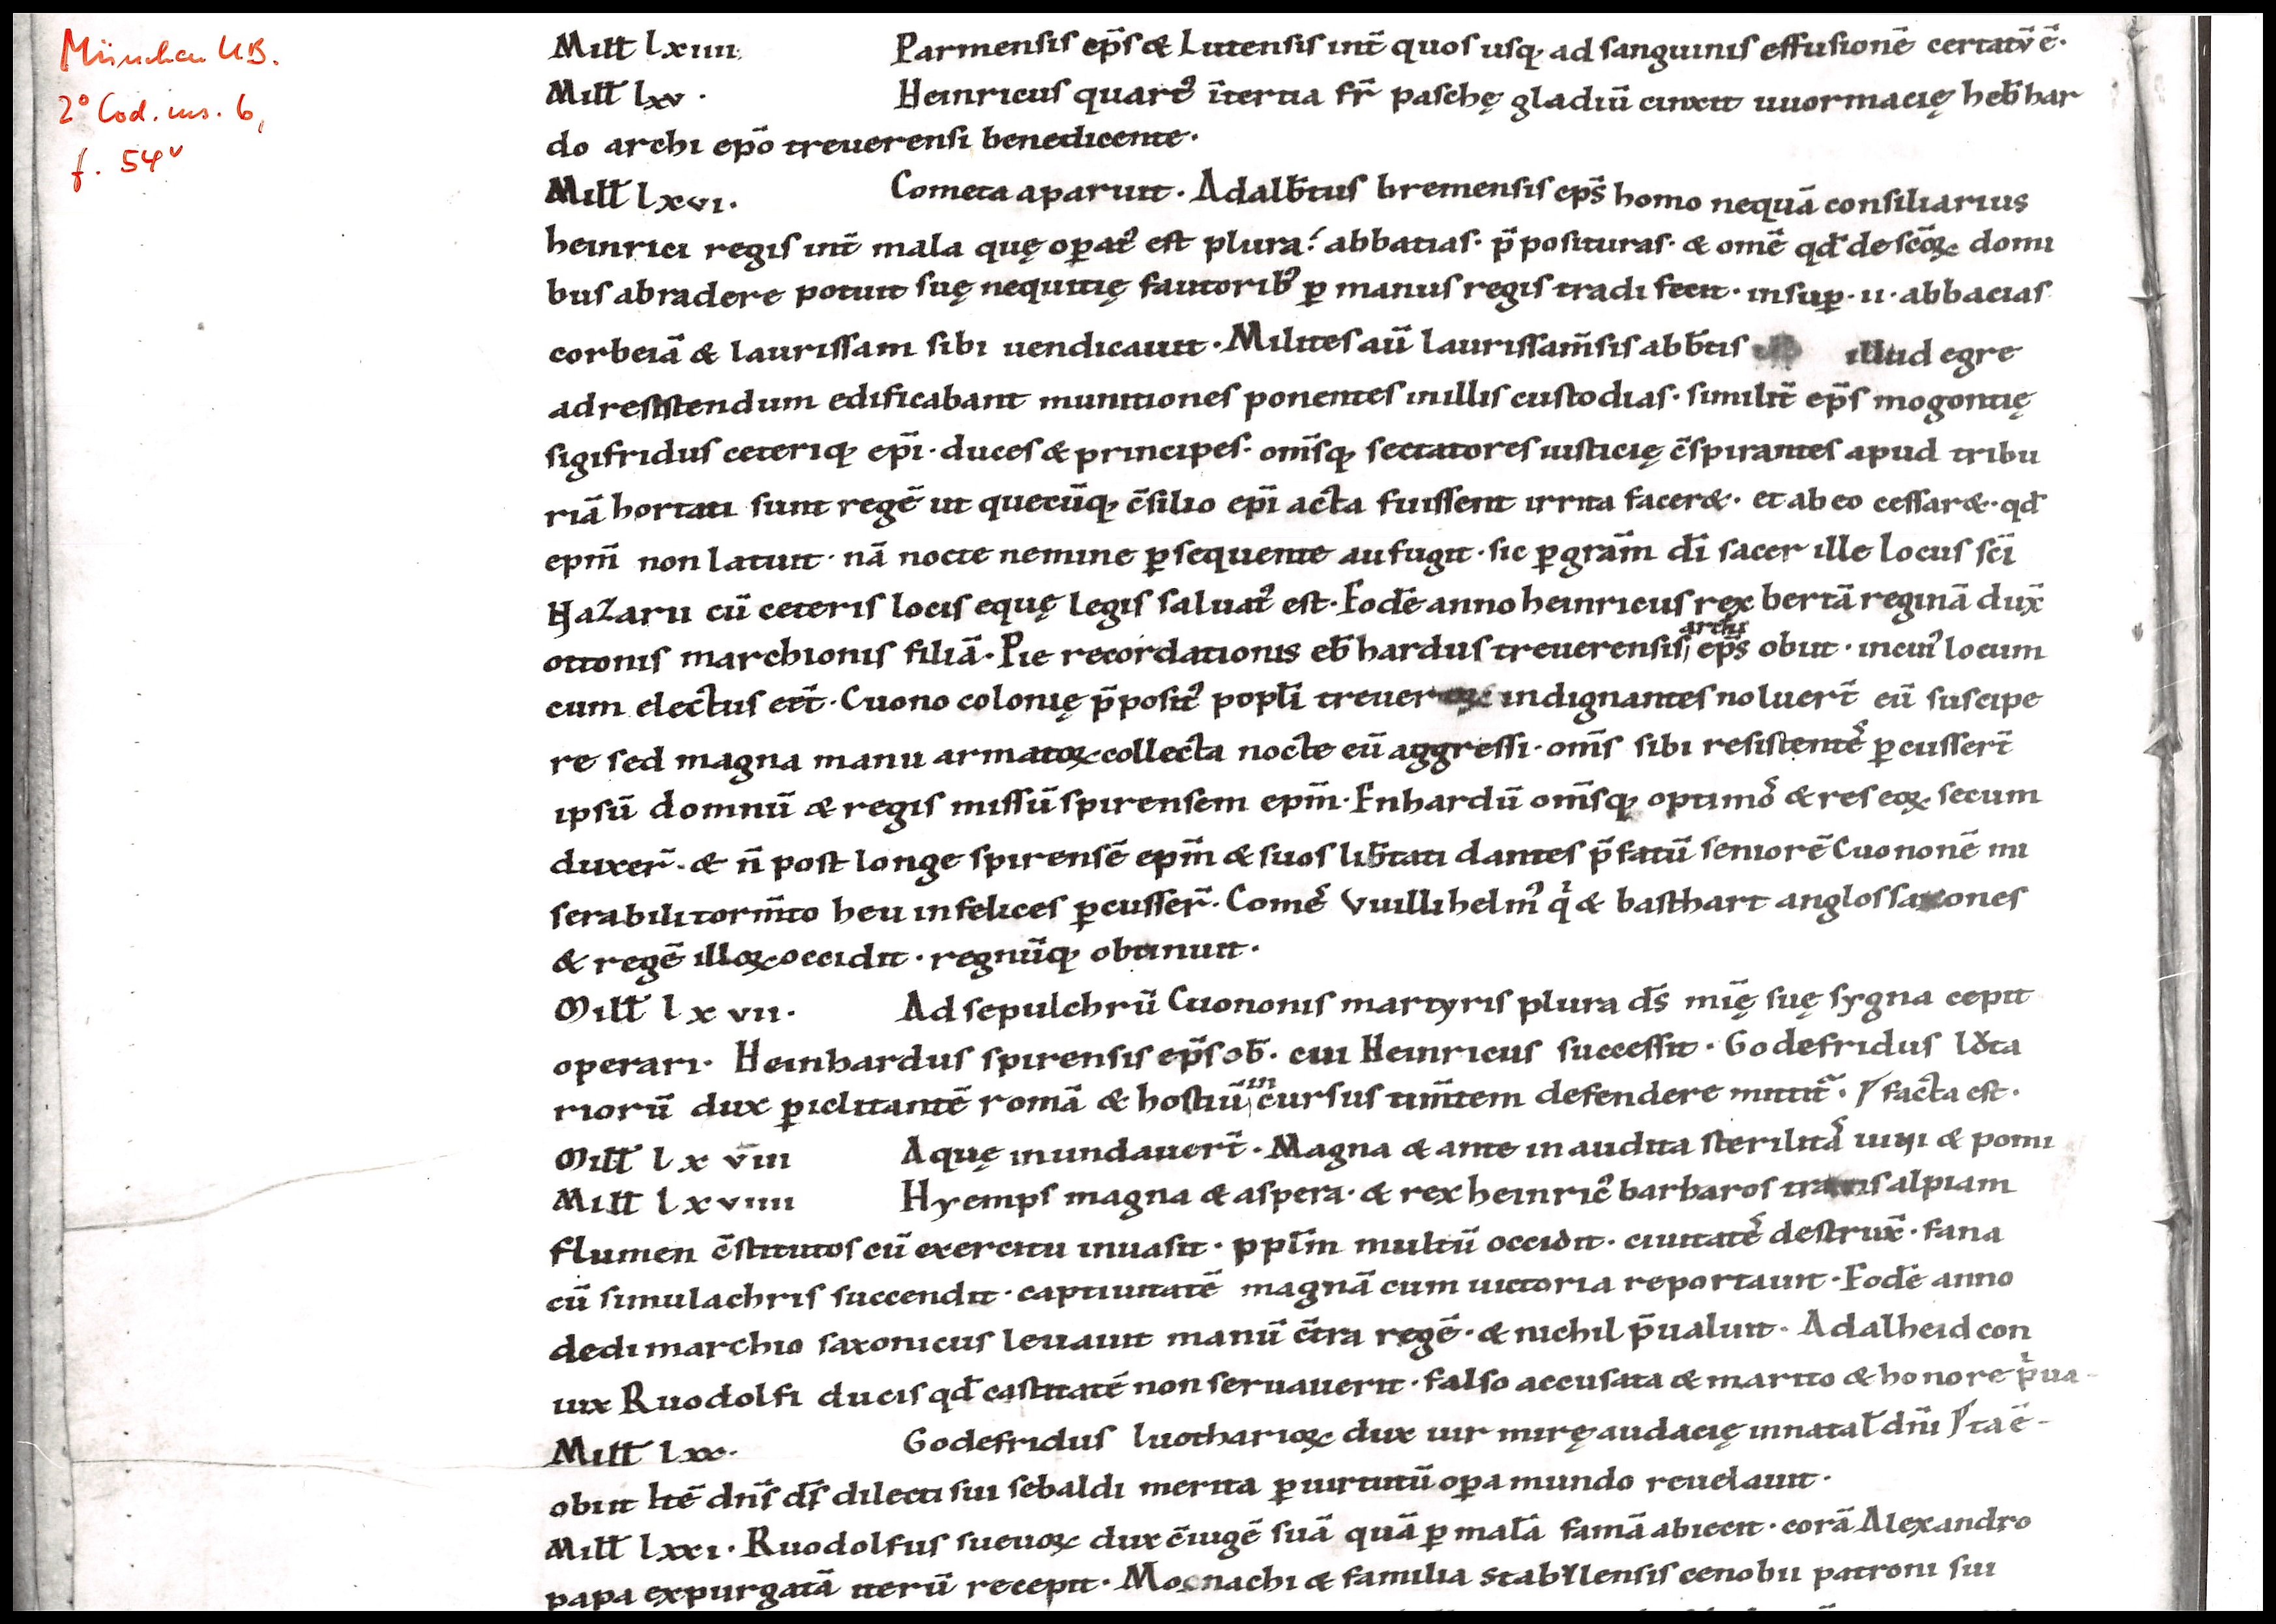 München UB.
2° Cod. ms. 6,
f. 54v
Mill̅ lxiiii. Parmensis ep̅s & Lutensis int̅ quos usq; ad sanguinis effusionē certatū ē.
Mill̅ lxv. Heinricus quartꝰ ī tertia fr̅ paschę gladiū cinxit uuormacię heb̅har
do archi ep̅o treuerensi benedicente.
Mill̅ lxvi. Cometa aparuit. Adalb̅tus bremensis ep̅s homo nequā consiliarius
heinrici regis int̅ mala quę oꝑatꝰ est plura. abbatias. p̅posituras. & om̅e qd̅ de sc̅oꝝ domi
bus abradere potuit suę nequitię fautoribꝰ ꝑ manus regis tradi fecit. insuꝑ. ii. abbacias
corbeiā & laurissam sibi uendicauit. Milites aū laurissam̅sis abb̅tis illud egre
ad resistendum edificabant munitiones ponentes in illis custodias. similit̅ ep̅s mogontię
sigifridus ceteriq; ep̅i. duces & principes. om̅sq; sectatores iusticię c̅spirantes apud tribu
riā hortati sunt regē ut quecūq; c̅silio ep̅i acta fuissent irrita facer&. et ab eo cessar&. qd̅
ep̅m non latuit. nā nocte nemine ꝑsequente aufugit. sic ꝑ gr̅am dī sacer ille locus sc̅i
Hazarii cū ceteris locis equę legis saluatꝰ est. Eodē anno heinricus rex bertā reginā dux̅
ottonis marchionis filiā. Pie recordationis eb̅hardus treuerensis archi ep̅s obiit. in cuiꝰ locum
cum electus ēet. Cuono colonię p̅positꝰ popl̅i treueroꝝ indignantes noluer̅t eū suscipe
re sed magna manu armatoꝝ collecta nocte eū aggressi. om̅s sibi resistentes ꝑcusser̅t
ipsū domnū & regis missū spirensem ep̅m. Enhardū om̅sq; optimos & res eoꝝ secum
duxer̅. & n̅ post longe spirensē ep̅m & suos lib̅tati dantes p̅fatū seniorē Cuononē mi
serabili torm̅to heu infelices ꝑcusser̅. Comes Vuillihelmꝰ qi & basthart anglossaxones
& regē illoꝝ occidit. regnūq; obtinuit.
Mill̅ lxvii. Ad sepulchrū Cuononis martyris plura d̅s mīę suę sygna cepit
operari. Heinhardus spirensis ep̅s ob̅. cui Heinricus successit. Godefridus lota
riorū dux ꝑiclitantē romā & hostiū incursus tim̅tem defendere mittit̅. facta est.
Mill̅ lxviii Aquę inundauer̅t. Magna & ante inaudita sterilitas uini & pomi
Mill̅ lxviiii Hyemps magna & aspera. & rex heinricꝰ barbaros trans alpiam
flumen c̅stitutos cū exercitu inuasit. ppl̅m multū occidit. ciuitates destrux̅. fana
cū simulachris succendit. captiuitatē magnā cum uictoria reportauit. Eodē anno
dedi marchio saxonicus leuauit manū c̅tra regē. & nichil p̅ualuit. Adalheid con
iux Ruodolfi ducis qd̅ castitatē non seruauerit. falso accusata & marito & honore pͥua-
Mill̅ lxx. Godefridus luotharioꝝ dux uir mirę audacię in natal̅ dn̅i ta ē-
obiit h̅tē dn̅s d̅s dilecti sui sebaldi merita ꝑ uirtutū oꝑa mundo reuelauit.
Mill̅ lxxi. Ruodolfus sueuoꝝ dux c̅iugē suā quā ꝑ malā famā abiecit. corā Alexandro
papa expurgatā iterū recepit. Monachi & familia stabylensis cenobii patroni sui